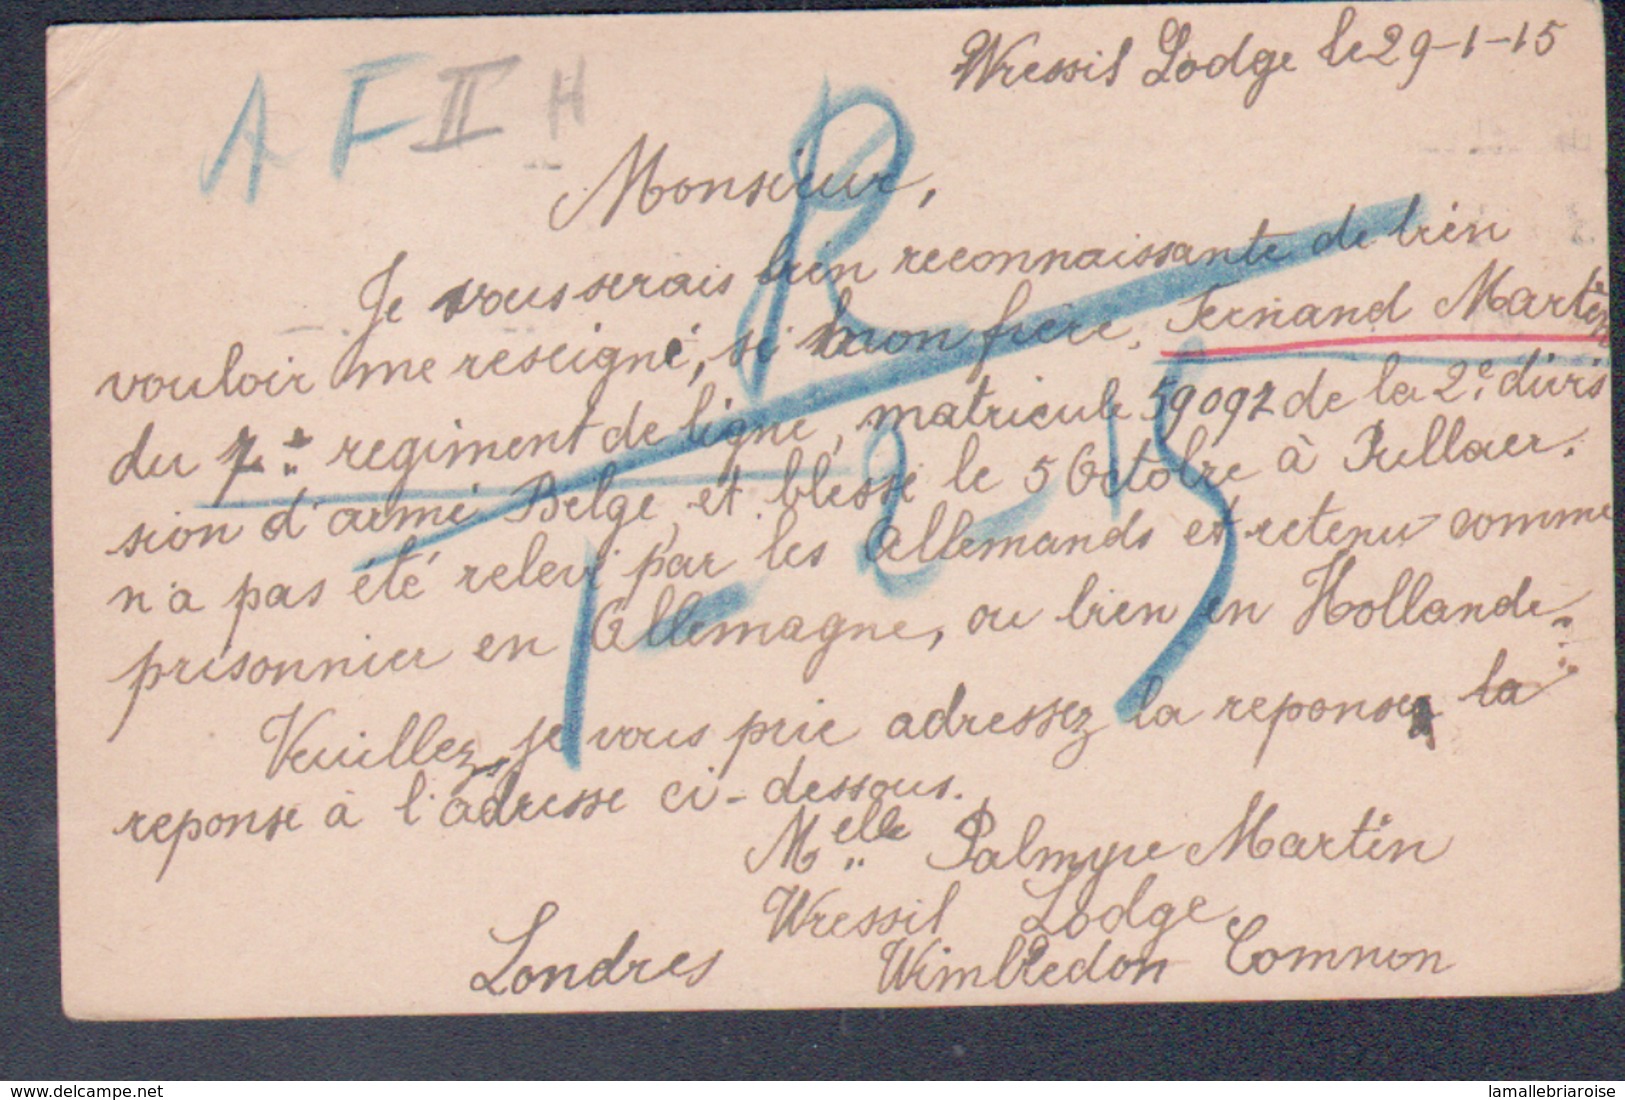 Wressil Lodge le 29-1-15
A F II H
Monsieur,
Je vous serais bien reconnaissante de bien
vouloir me reseigné, si mon frère, Fernand Martin
du 7e regiment de ligne, matricule 59092 de la 2e divi
sion d'armé Belge, et blessé le 5 Octobre à Pullaer.
n'a pas été relevé par les Allemands et retenu comme
prisonnier en Allemagne, ou bien en Hollande.
Veuillez, je vous prie adressez la reponse la
reponse à l'adresse ci-dessous.
Melle Palmyre Martin
Wressil Lodge
Londres Wimbledon Common
R
1-2-15
delcampe.net
lamallebriaroise